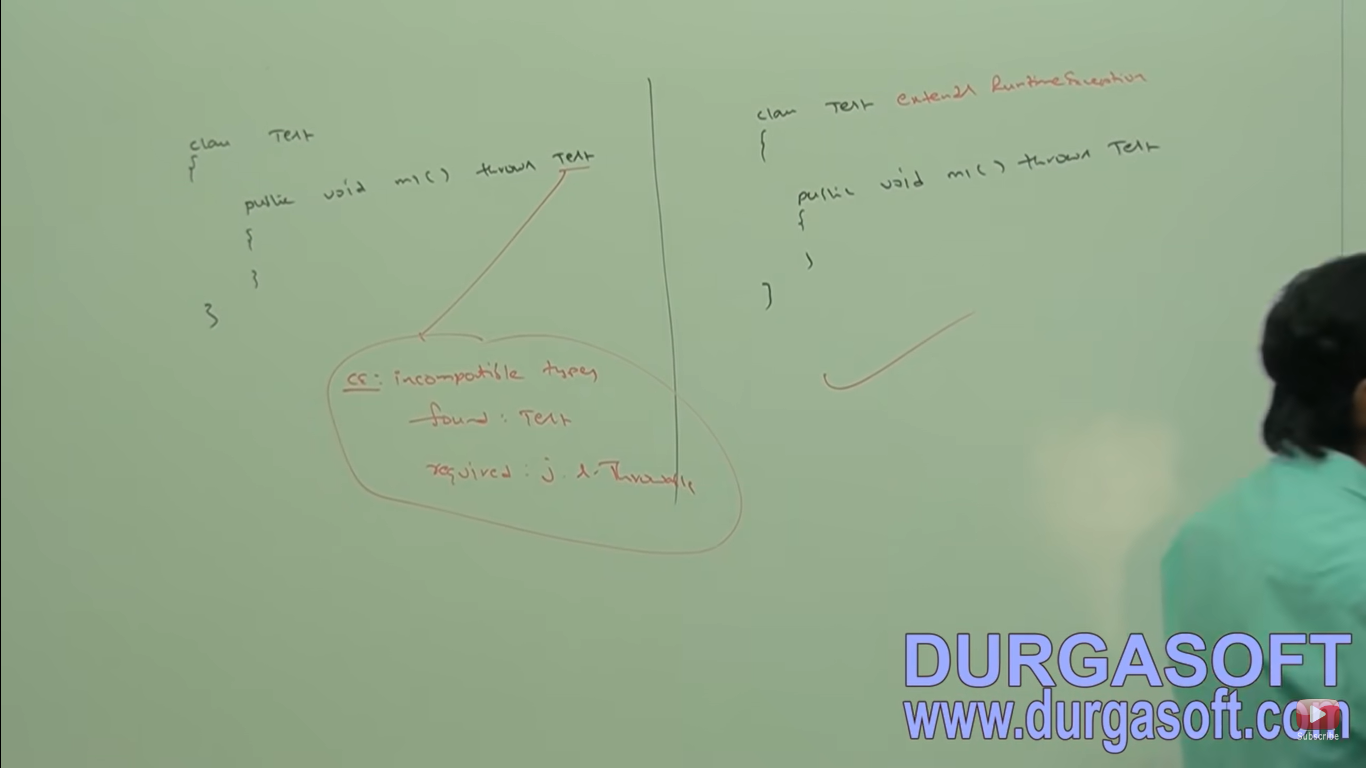 class Test
{
public void m1() throws Test
{
}
}
CE: incompatible types
found: Test
required: j.l.Throwable
class Test extends RuntimeException
{
public void m1() throws Test
{
}
}
DURGASOFT
www.durgasoft.com
Subscribe